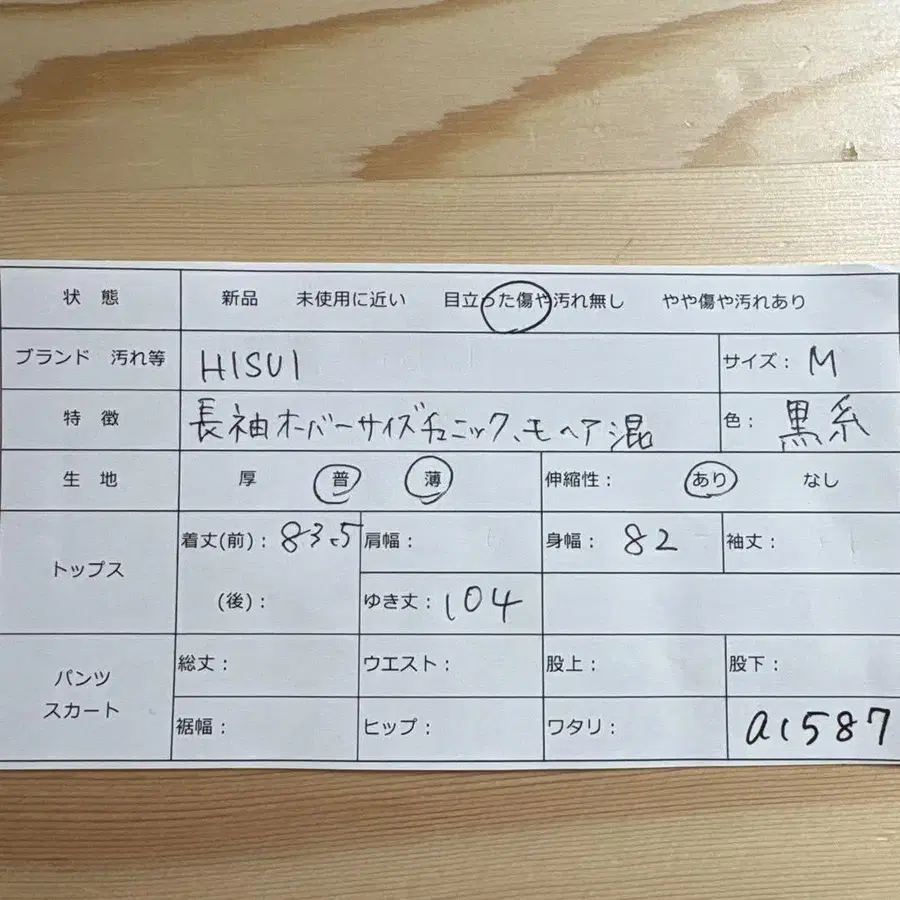 状 態 新品 未使用に近い 目立った傷や汚れ無し やや傷や汚れあり
ブランド 汚れ等 HISUI サイズ: M
特 徴 長袖オーバーサイズチュニック、モヘア混 色: 黒系
生 地 厚 普 薄 伸縮性: あり なし
トップス 着丈(前): 83.5 肩幅: 身幅: 82 袖丈:
(後): ゆき丈: 104
パンツ スカート 総丈: ウエスト: 股上: 股下:
裾幅: ヒップ: ワタリ: a1587